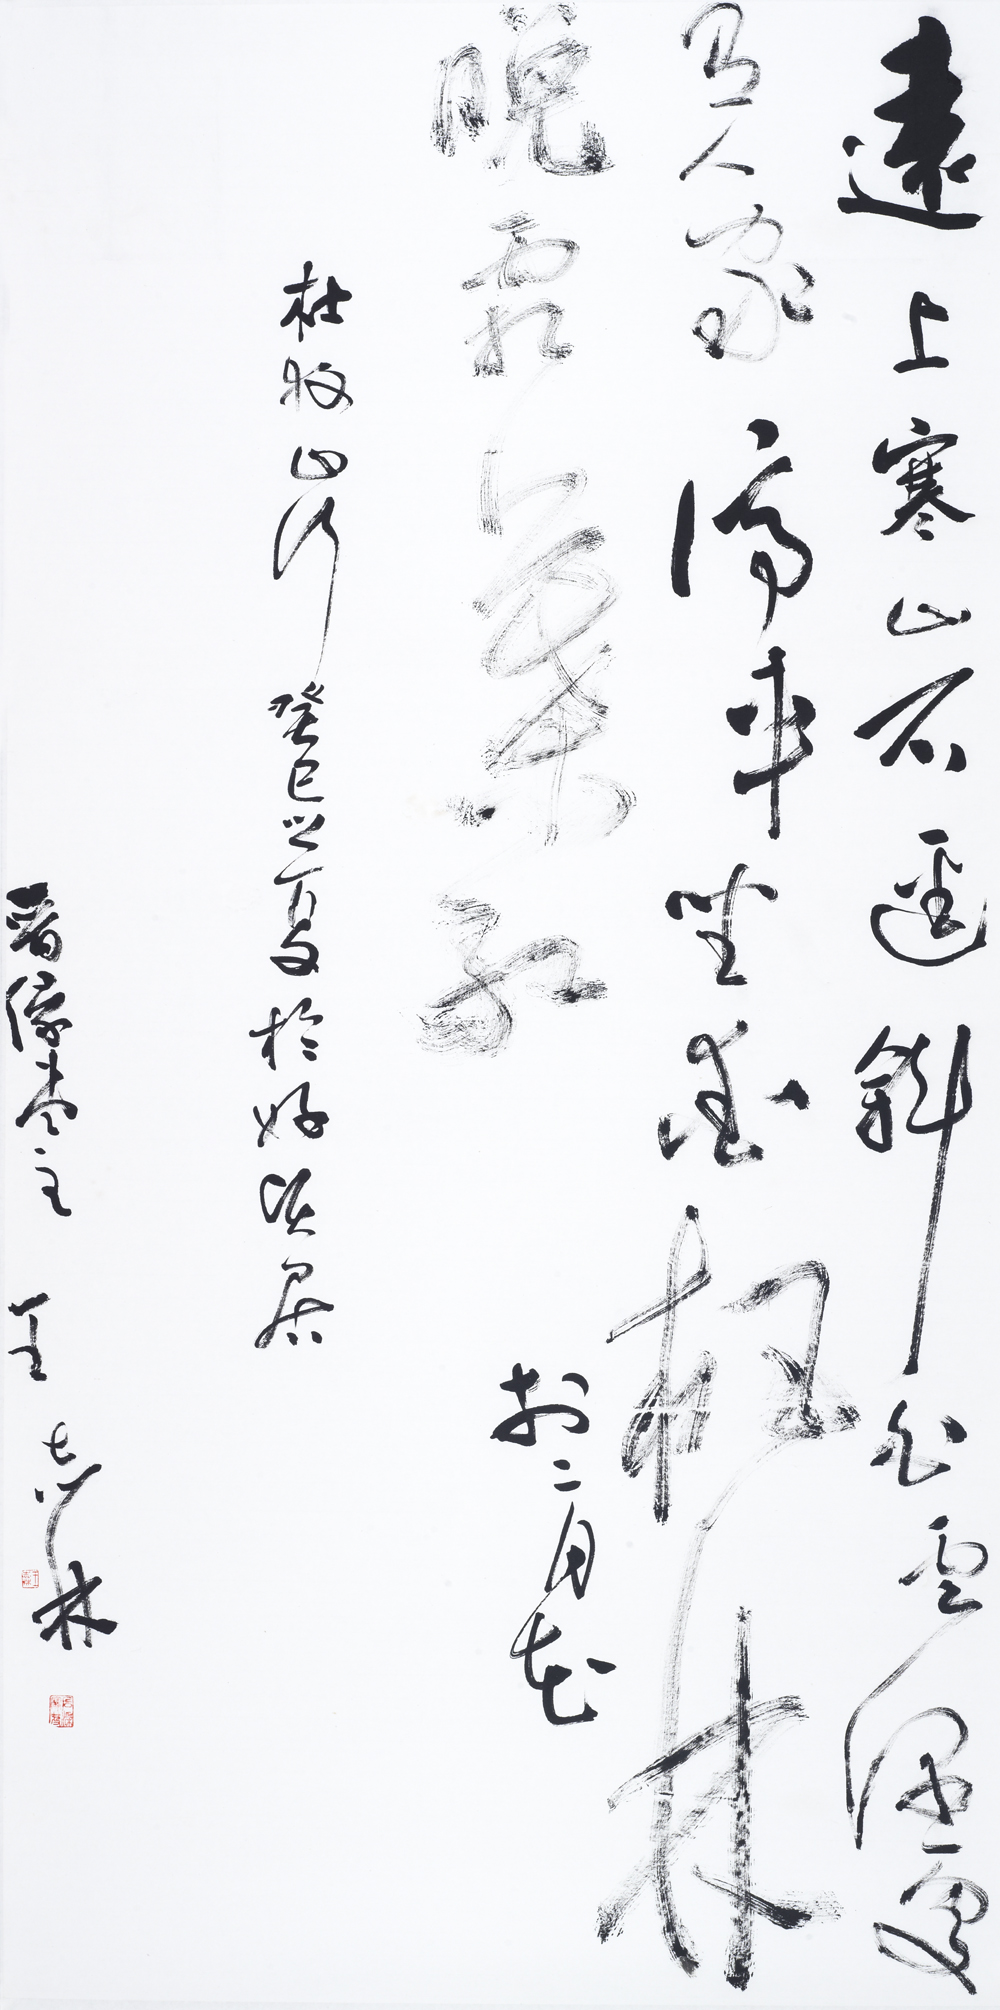 遠上寒山石逕斜白雲深處
有人家停車坐愛楓林
晚霜葉紅於二月花
杜牧山行癸巳之夏於好居
晉主王志林